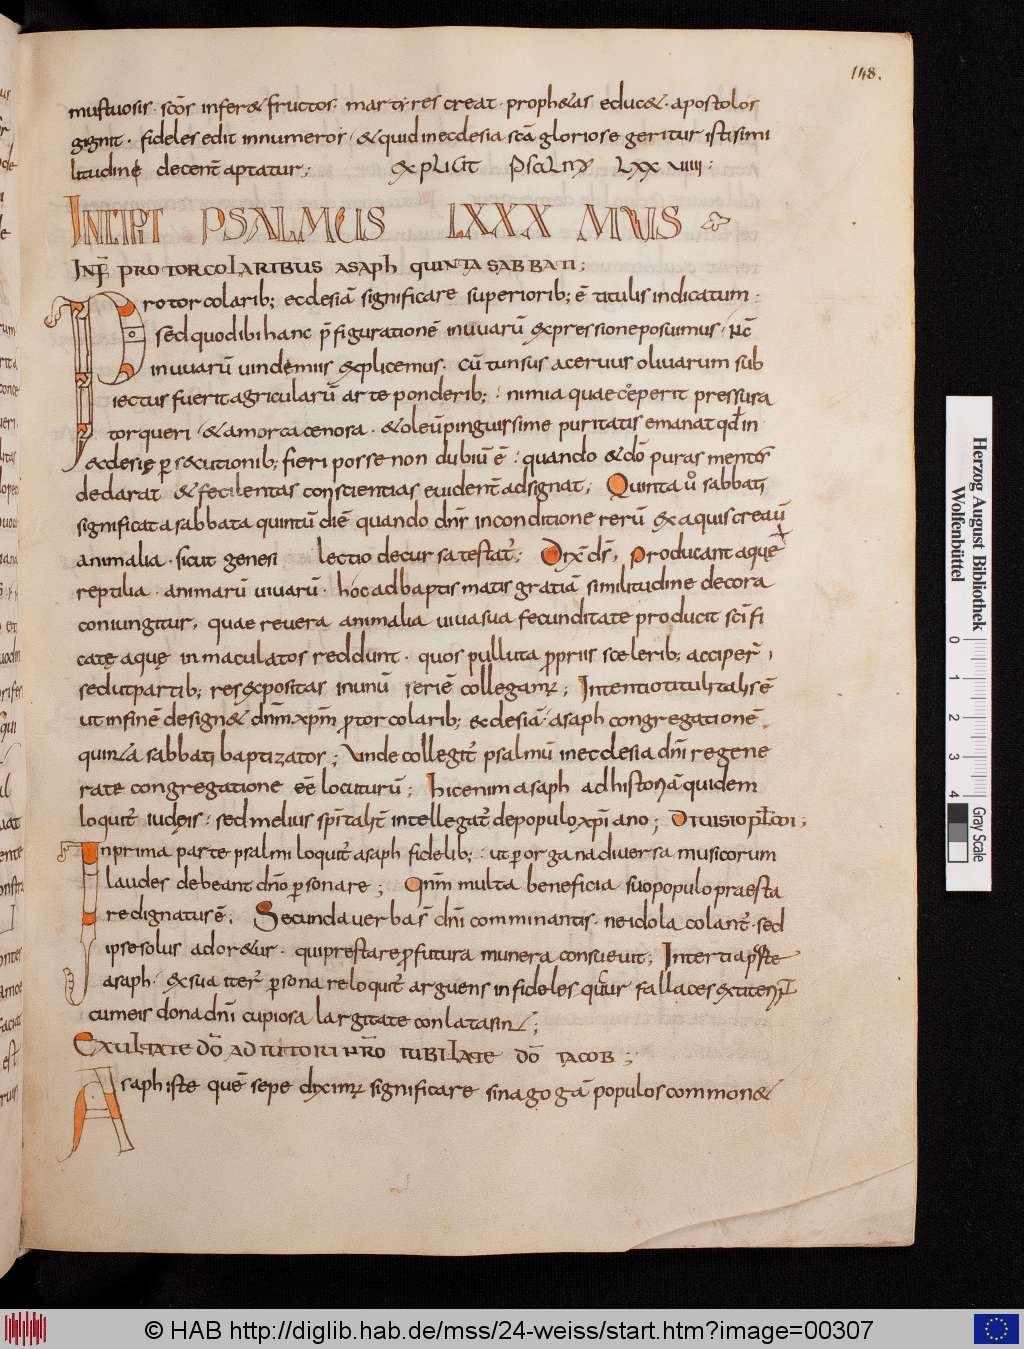 148.
mustuosis · scōs infer& fructos · martyres creat · proph&as educ& · apostolos
gignit · fideles edit innumeros · & quid in ecclesia scā gloriose geritur isti simi
litudinę decent̄ aptatur ;
explicit psalm LXX VIIII :
INCIPIT PSALMUS LXXX
INF̄ PRO TORCOLARIBUS ASAPH QUINTA SABBATI ;
Pro torcolarib; ecclesiā significare superiorib; ē titulis indicatum ·
sed quod ibi hanc p̄figurationē in uuarū expressione posuimus ·
in uuarū uindemiis explicemus · cū tunsus aceruus oliuarum sub
iectus fuerit agricularū arte ponderib; · nimia quae ceperit pressura
torqueri · & amorca cenosa · & oleū pinguissime puritatis emanat qd̄ in
ecclesię p̱ secutionib; fieri posse non dubiū ē : quando & dō puras mentes
declarat & feculentas conscientias euident̄ adsignat ; Quinta u° sabbati
significat a sabbata quintū diē quando dn̄s in conditione rerū ex aquis creau
animalia · sicut genesi lectio decursa testat̄ ; Dix̄ ds̄, Producant aquę
reptilia · animarū uiuarū · hoc ad baptismatis gratiā similitudine decora
coniungitur, quae reuera animalia uiua sua fecunditate producit scīfi
catę aquę inmaculatos reddunt · quos polluta p̱priis scelerib; acciper̄,
sed ut partib; res expositas in unū seriē collegamꝰ ; Intentio tituli talis ē
ut in finē design& dnm̄ xpm̄ p̱ torcolarib; ecclesiā · asaph congregationē
quinta sabbati baptizator ; Unde collegit̄ psalmū in ecclesia dn̄i regene
rate congregatione eē locuturū ; hic enim asaph ad historiā quidem
loquit̄ iudęis : sed melius spīt̄alit̄ intellegat̄ de populo xp̄iano ; Diuisio psl̄mi ;
In prima parte psalmi loquit̄ asaph fidelib; · ut p̱ organa diuersa musicorum
laudes debeant dn̄o p̱sonare ; Qnm̄ multa beneficia suo populo praesta
re dignatus ē. Secunda uerba s̄ dn̄i comminantis · ne idola colant̄ · sed
ipse solus ador&ur · qui prestare p̱ futura munera consueuit ; In tertia
asaph · ex sua iter̄ p̱sona reloquit̄ arguens infideles fallaces
cum eis dona dn̄i cupiosa largitate conlata sint ;
EXULTATE DŌ ADIUTORI NR̄O IUBILATE DŌ IACOB ;
Asaph iste quē sepe diximꝰ significare sinagogā populos common&
Herzog August Bibliothek
Wolfenbüttel
0 1 2 3 4
Gray Scale
© HAB http://diglib.hab.de/mss/24-weiss/start.htm?image=00307